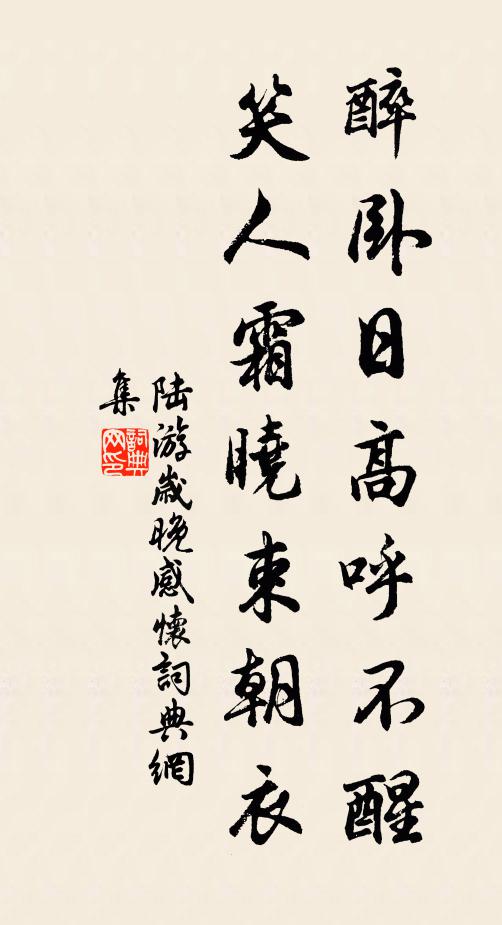 醉卧日高呼不醒
笑人霜曉束朝衣
陸游歲晚感懷詞典網
集
詞典
网印